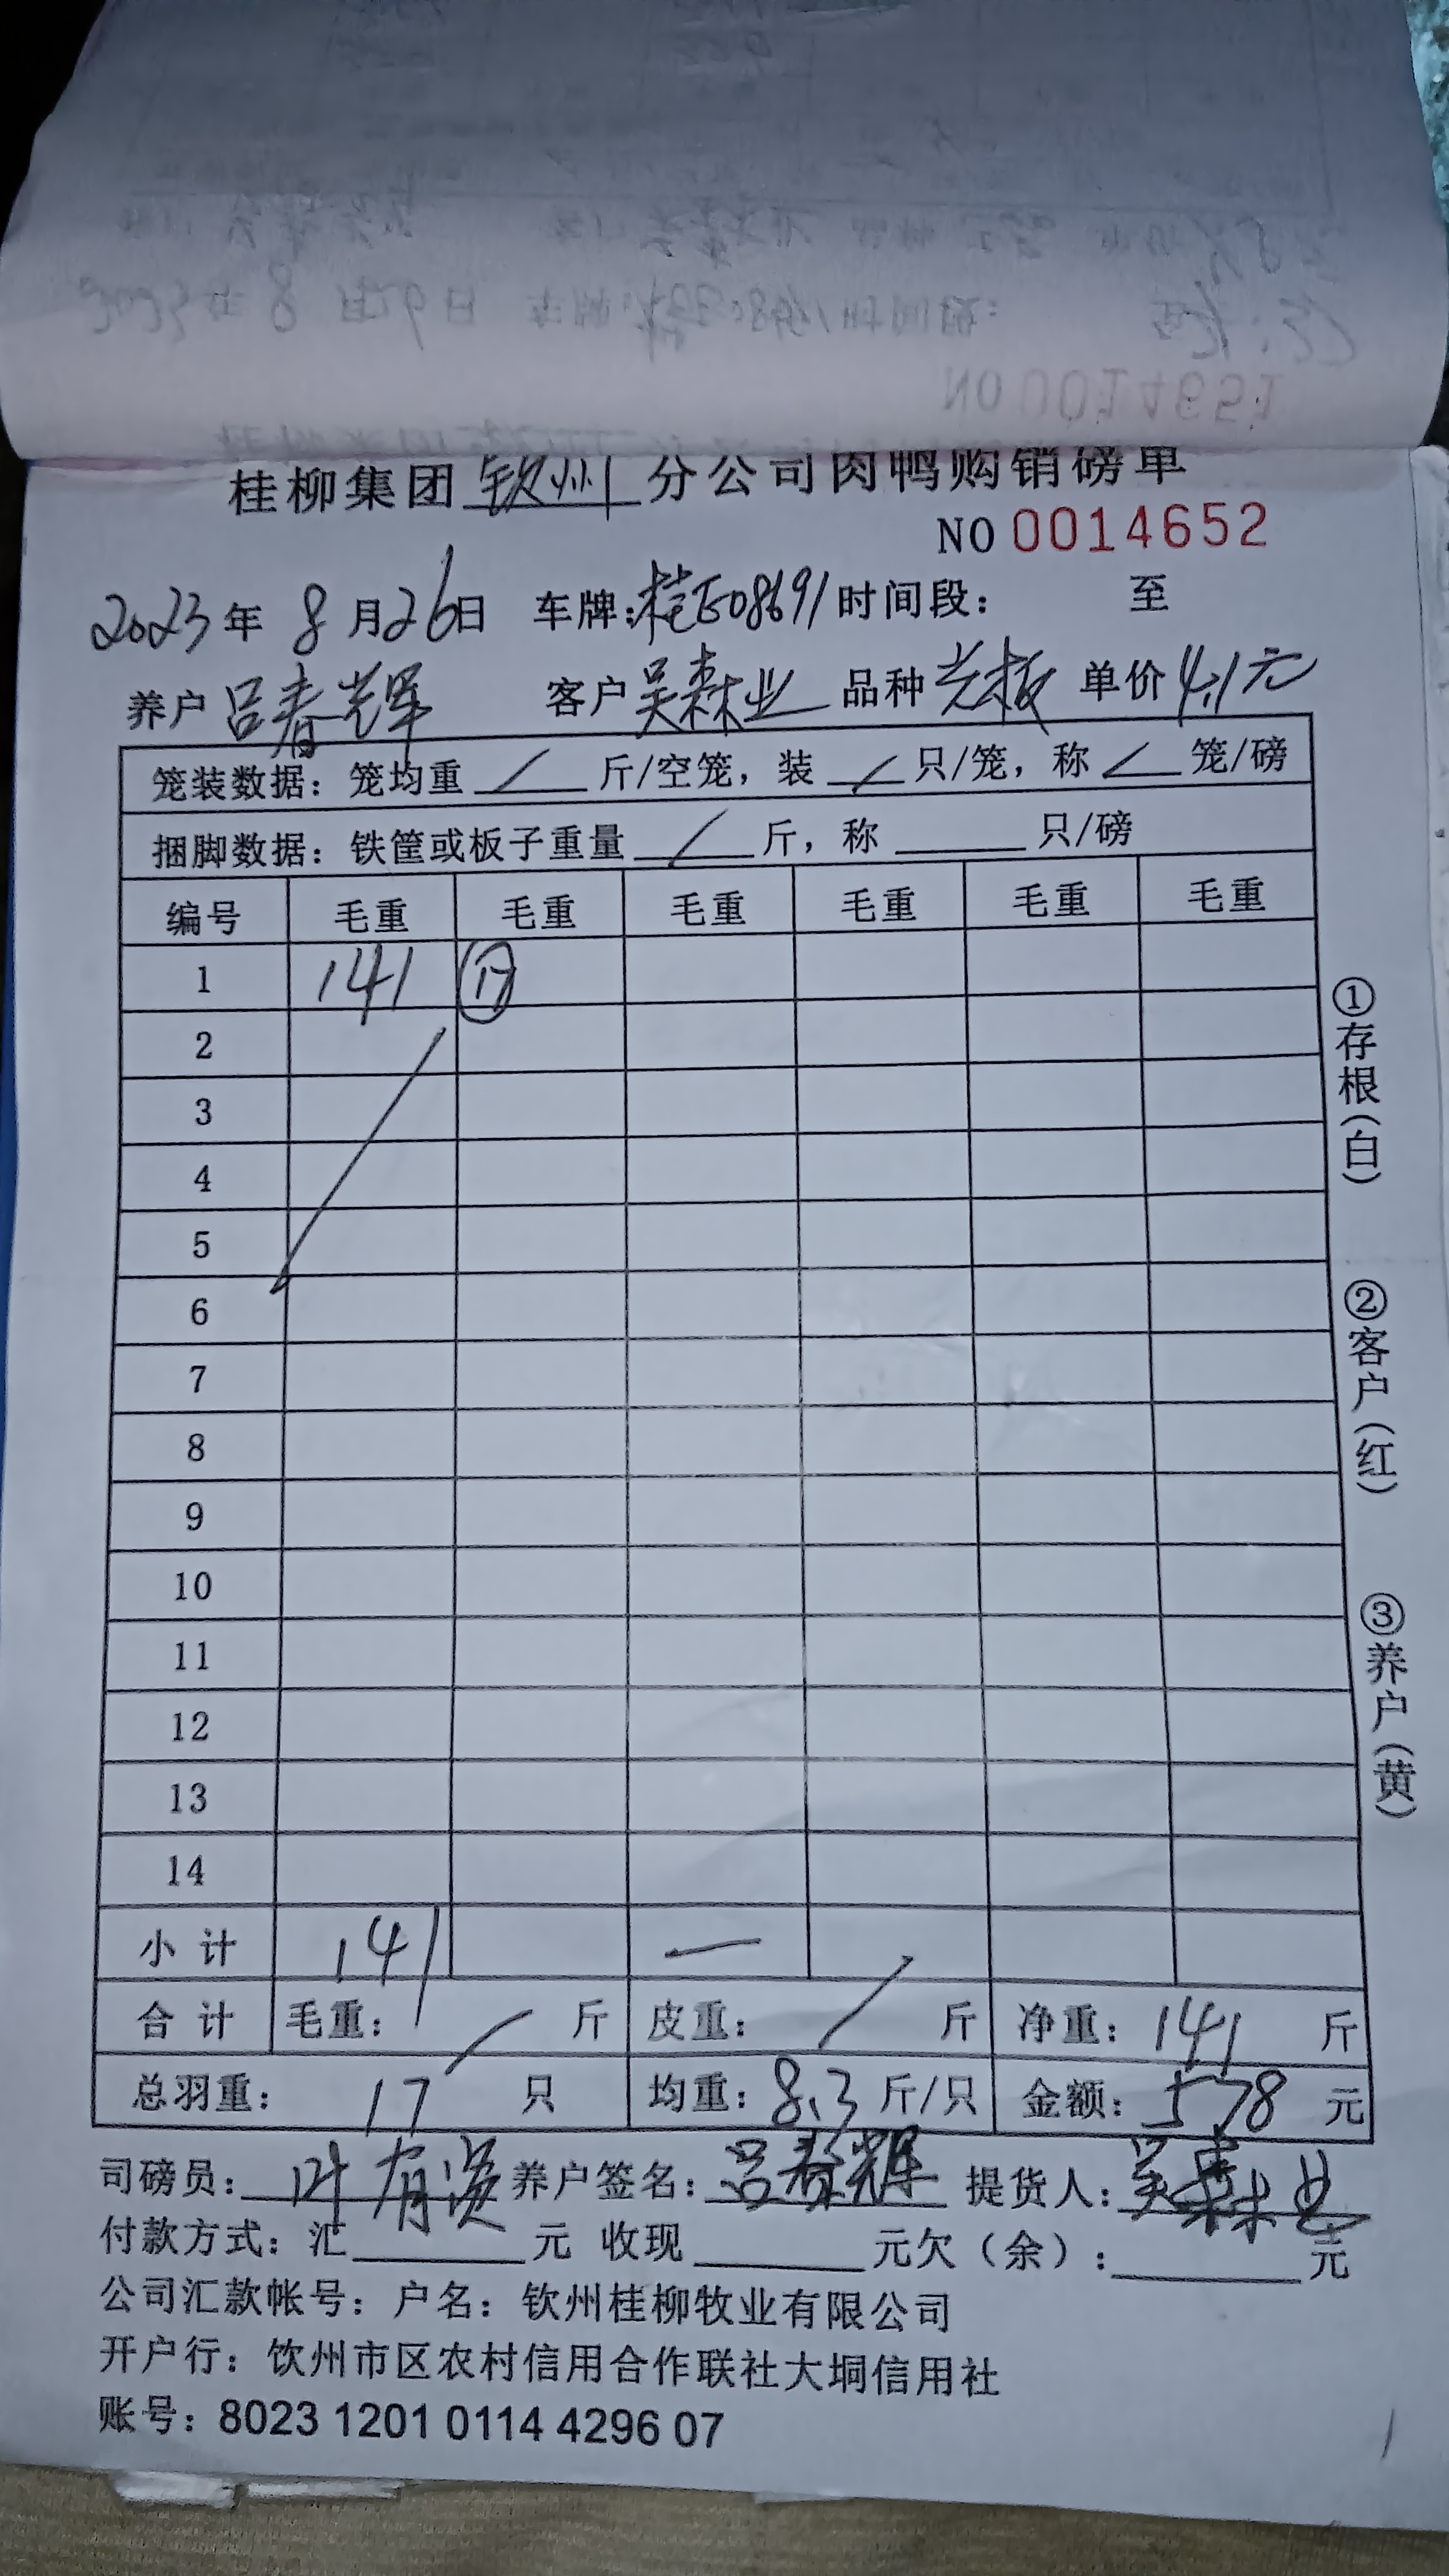 桂柳集团钦州分公司肉鸭购销磅单
NO 0014652
2023年 8月26日 车牌:桂E08691 时间段: 至
养户 吕春辉 客户 吴森业 品种 光板 单价 4.1元
笼装数据: 笼均重 / 斤/空笼, 装 / 只/笼, 称 / 笼/磅
捆脚数据: 铁筐或板子重量 / 斤, 称 只/磅
编号 毛重 毛重 毛重 毛重 毛重 毛重
1 141 17
2
3
4
5
6
7
8
9
10
11
12
13
14
小计 141 —
合计 毛重: / 斤 皮重: / 斤 净重: 141 斤
总羽重: 17 只 均重: 8.3 斤/只 金额: 578 元
司磅员: 叶有 养户签名: 吕春辉 提货人: 吴森业
付款方式: 汇 元 收现 元欠(余): 元
公司汇款帐号: 户名: 钦州桂柳牧业有限公司
开户行: 饮州市区农村信用合作联社大垌信用社
账号: 8023 1201 0114 4296 07
①存根(白)
②客户(红)
③养户(黄)
NO 0014651
2023年 8月29日